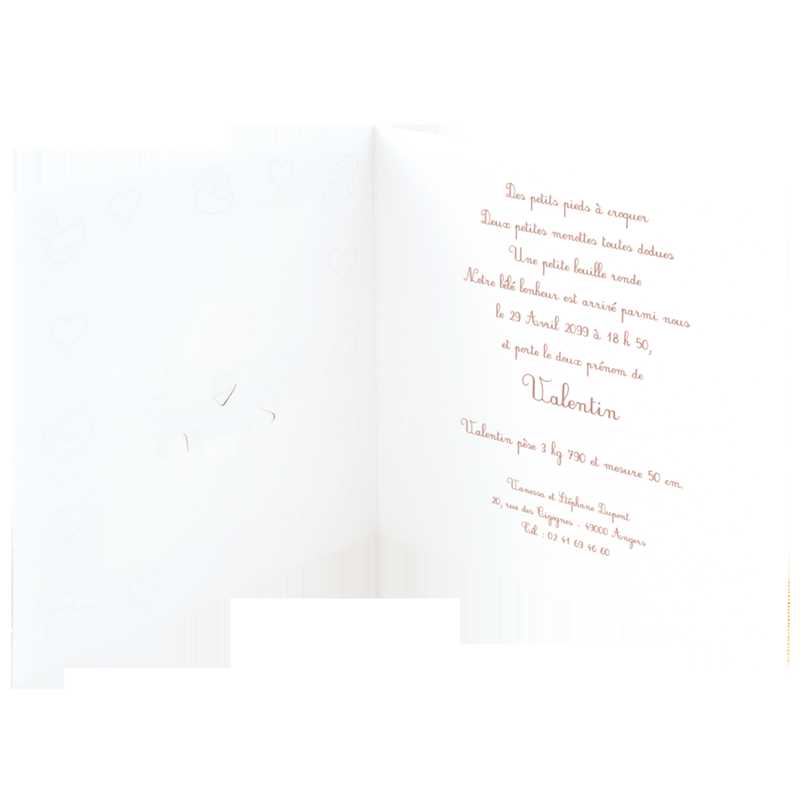 Des petits pieds à croquer
Deux petites menottes toutes dodues
Une petite bouille ronde
Notre bébé bonheur est arrivé parmi nous
le 29 Avril 2099 à 18 h 50,
et porte le doux prénom de
Valentin
Valentin pèse 3 kg 790 et mesure 50 cm.
Vanessa et Stéphane Dupont
20, rue des Cigognes - 49000 Angers
Tél : 02 41 69 46 60